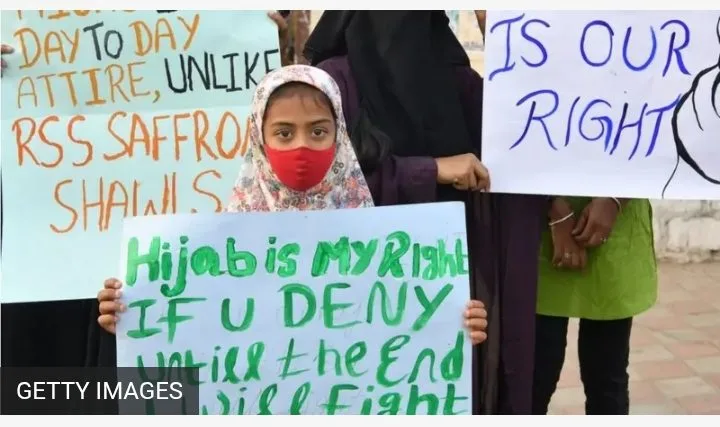 DAY TO DAY
ATTIRE, UNLIKE
RSS SAFFRON
SHAWLS
IS OUR
RIGHT
Hijab is My Right
IF U DENY
Untill the End
I will Fight
GETTY IMAGES